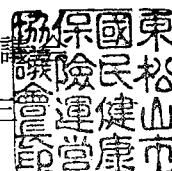 東松山市
國民健康
保険運営
協議會長印
議